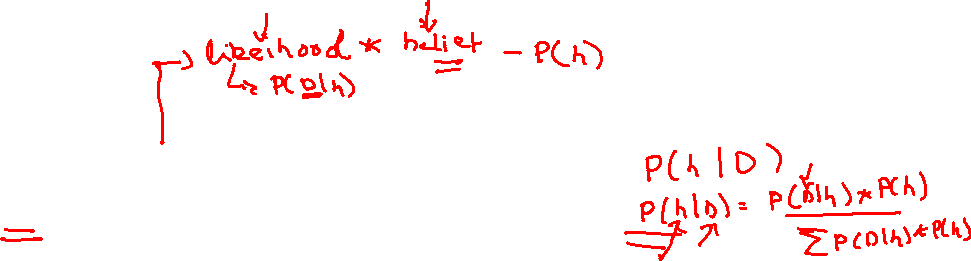 likelihood * belief - P(h)
P(D|h)
P(h|D)
P(h|D) = P(D|h) * P(h)
∑ P(D|h) * P(h)